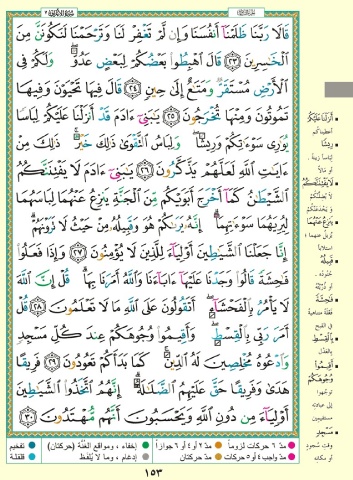 قَالَا رَبَّنَا ظَلَمْنَآ أَنفُسَنَا وَإِن لَّمْ تَغْفِرْ لَنَا وَتَرْحَمْنَا لَنَكُونَنَّ مِنَ
ٱلْخَٰسِرِينَ ﴿٢٣﴾ قَالَ ٱهْبِطُوا۟ بَعْضُكُمْ لِبَعْضٍ عَدُوٌّ ۖ وَلَكُمْ فِى
ٱلْأَرْضِ مُسْتَقَرٌّ وَمَتَٰعٌ إِلَىٰ حِينٍ ﴿٢٤﴾ قَالَ فِيهَا تَحْيَوْنَ وَفِيهَا
تَمُوتُونَ وَمِنْهَا تُخْرَجُونَ ﴿٢٥﴾ يَٰبَنِىٓ ءَادَمَ قَدْ أَنزَلْنَا عَلَيْكُمْ لِبَاسًا
يُوَٰرِى سَوْءَٰتِكُمْ وَرِيشًا ۖ وَلِبَاسُ ٱلتَّقْوَىٰ ذَٰلِكَ خَيْرٌ ۚ ذَٰلِكَ مِنْ
ءَايَٰتِ ٱللَّهِ لَعَلَّهُمْ يَذَّكَّرُونَ ﴿٢٦﴾ يَٰبَنِىٓ ءَادَمَ لَا يَفْتِنَنَّكُمُ
ٱلشَّيْطَٰنُ كَمَآ أَخْرَجَ أَبَوَيْكُم مِّنَ ٱلْجَنَّةِ يَنزِعُ عَنْهُمَا لِبَاسَهُمَا
لِيُرِيَهُمَا سَوْءَٰتِهِمَآ ۗ إِنَّهُۥ يَرَىٰكُمْ هُوَ وَقَبِيلُهُۥ مِنْ حَيْثُ لَا تَرَوْنَهُمْ ۗ
إِنَّا جَعَلْنَا ٱلشَّيَٰطِينَ أَوْلِيَآءَ لِلَّذِينَ لَا يُؤْمِنُونَ ﴿٢٧﴾ وَإِذَا فَعَلُوا۟
فَٰحِشَةً قَالُوا۟ وَجَدْنَا عَلَيْهَآ ءَابَآءَنَا وَٱللَّهُ أَمَرَنَا بِهَا ۗ قُلْ إِنَّ ٱللَّهَ
لَا يَأْمُرُ بِٱلْفَحْشَآءِ ۖ أَتَقُولُونَ عَلَى ٱللَّهِ مَا لَا تَعْلَمُونَ ﴿٢٨﴾ قُلْ
أَمَرَ رَبِّى بِٱلْقِسْطِ ۖ وَأَقِيمُوا۟ وُجُوهَكُمْ عِندَ كُلِّ مَسْجِدٍ
وَٱدْعُوهُ مُخْلِصِينَ لَهُ ٱلدِّينَ ۚ كَمَا بَدَأَكُمْ تَعُودُونَ ﴿٢٩﴾ فَرِيقًا
هَدَىٰ وَفَرِيقًا حَقَّ عَلَيْهِمُ ٱلضَّلَٰلَةُ ۗ إِنَّهُمُ ٱتَّخَذُوا۟ ٱلشَّيَٰطِينَ
أَوْلِيَآءَ مِن دُونِ ٱللَّهِ وَيَحْسَبُونَ أَنَّهُم مُّهْتَدُونَ ﴿٣٠﴾
أَنزَلْنَا عَلَيْكُمْ
أعطيناكم
رِيشًا
لباسًا زينة
أو مالًا
لَا يَفْتِنَنَّكُمُ
لا يُضلَّنَّكم
يَنزِعُ عَنْهُمَا
قَبِيلُهُ
جنوده
أو ذريته
فَٰحِشَةً
فعلة متناهية
في القبح
بِٱلْقِسْطِ
بالعدل
أَقِيمُوا۟
وُجُوهَكُمْ
توجهوا
إلى عبادته
مستقيمين
مَسْجِدٍ
وقت سجود
أو مكانه
مدّ ٦ حركات لزوماً
مدّ ٢ أو ٤ أو ٦ جوازاً
إخفاء، ومواقع الغُنَّة (حركتان)
تفخيم
مدّ واجب ٤ أو ٥ حركات
مدّ حركتان
إدغام، وما لا يُلفَظ
قلقلة
١٥٣